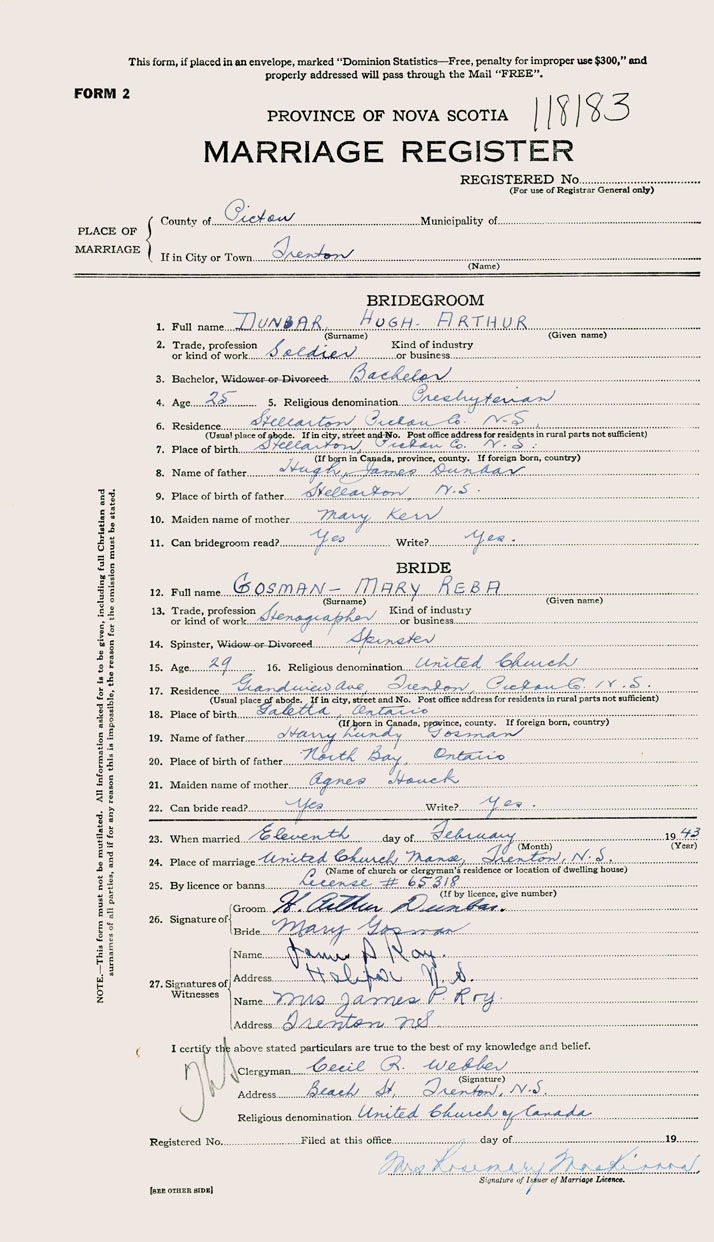 This form, if placed in an envelope, marked "Dominion Statistics—Free, penalty for improper use $300," and
properly addressed will pass through the Mail "FREE".
FORM 2
PROVINCE OF NOVA SCOTIA 118183
MARRIAGE REGISTER
REGISTERED No.
(For use of Registrar General only)
PLACE OF MARRIAGE
County of Pictou Municipality of
If in City or Town Trenton
(Name)
BRIDEGROOM
1. Full name DUNBAR, HUGH ARTHUR
(Surname) (Given name)
2. Trade, profession or kind of work Soldier Kind of industry or business
3. Bachelor, Widower or Divorced. Bachelor
4. Age 25 5. Religious denomination Presbyterian
6. Residence Stellarton Pictou Co. N.S.
(Usual place of abode. If in city, street and No. Post office address for residents in rural parts not sufficient)
7. Place of birth Stellarton, Pictou C. N.S.
(If born in Canada, province, county. If foreign born, country)
8. Name of father Hugh James Dunbar
9. Place of birth of father Stellarton, N.S.
10. Maiden name of mother Mary Kerr
11. Can bridegroom read? Yes Write? Yes.
BRIDE
12. Full name GOSMAN - MARY REBA
(Surname) (Given name)
13. Trade, profession or kind of work Stenographer Kind of industry or business
14. Spinster, Widow or Divorced Spinster
15. Age 29 16. Religious denomination United Church
17. Residence Grandview Ave, Trenton, Pictou C. N.S.
(Usual place of abode. If in city, street and No. Post office address for residents in rural parts not sufficient)
18. Place of birth Galetta, Ontario
(If born in Canada, province, county. If foreign born, country)
19. Name of father Harry Lundy Gosman
20. Place of birth of father North Bay, Ontario
21. Maiden name of mother Agnes Houck
22. Can bride read? Yes Write? Yes.
23. When married Eleventh day of February 1943
(Month) (Year)
24. Place of marriage United Church Manse, Trenton, N.S.
(Name of church or clergyman's residence or location of dwelling house)
25. By licence or banns License # 65318
(If by licence, give number)
26. Signature of
Groom H. Arthur Dunbar.
Bride Mary Gosman
27. Signatures of Witnesses
Name James P Roy.
Address Halifax N.S.
Name Mrs James P. Roy.
Address Trenton NS
I certify the above stated particulars are true to the best of my knowledge and belief.
Clergyman Cecil R. Webber
(Signature)
Address Beach St, Trenton, N.S.
Religious denomination United Church of Canada
Registered No. Filed at this office day of 19
Mrs Rosemary MacKinnon,
Signature of Issuer of Marriage Licence.
[SEE OTHER SIDE]
NOTE.—This form must not be mutilated. All information asked for is to be given, including full Christian and
surnames of all parties, and if for any reason this is impossible, the reason for the omission must be stated.